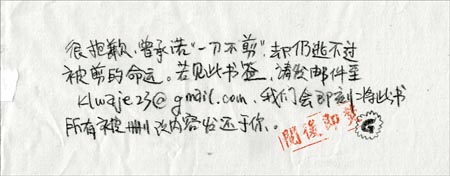 很抱歉，曾承诺“一刀不剪”，却仍逃不过
被剪的命运。若见此书签，请发邮件至
klwaje23@gmail.com，我们会即刻将此书
所有被删改内容发还于你。
閱後即焚
G